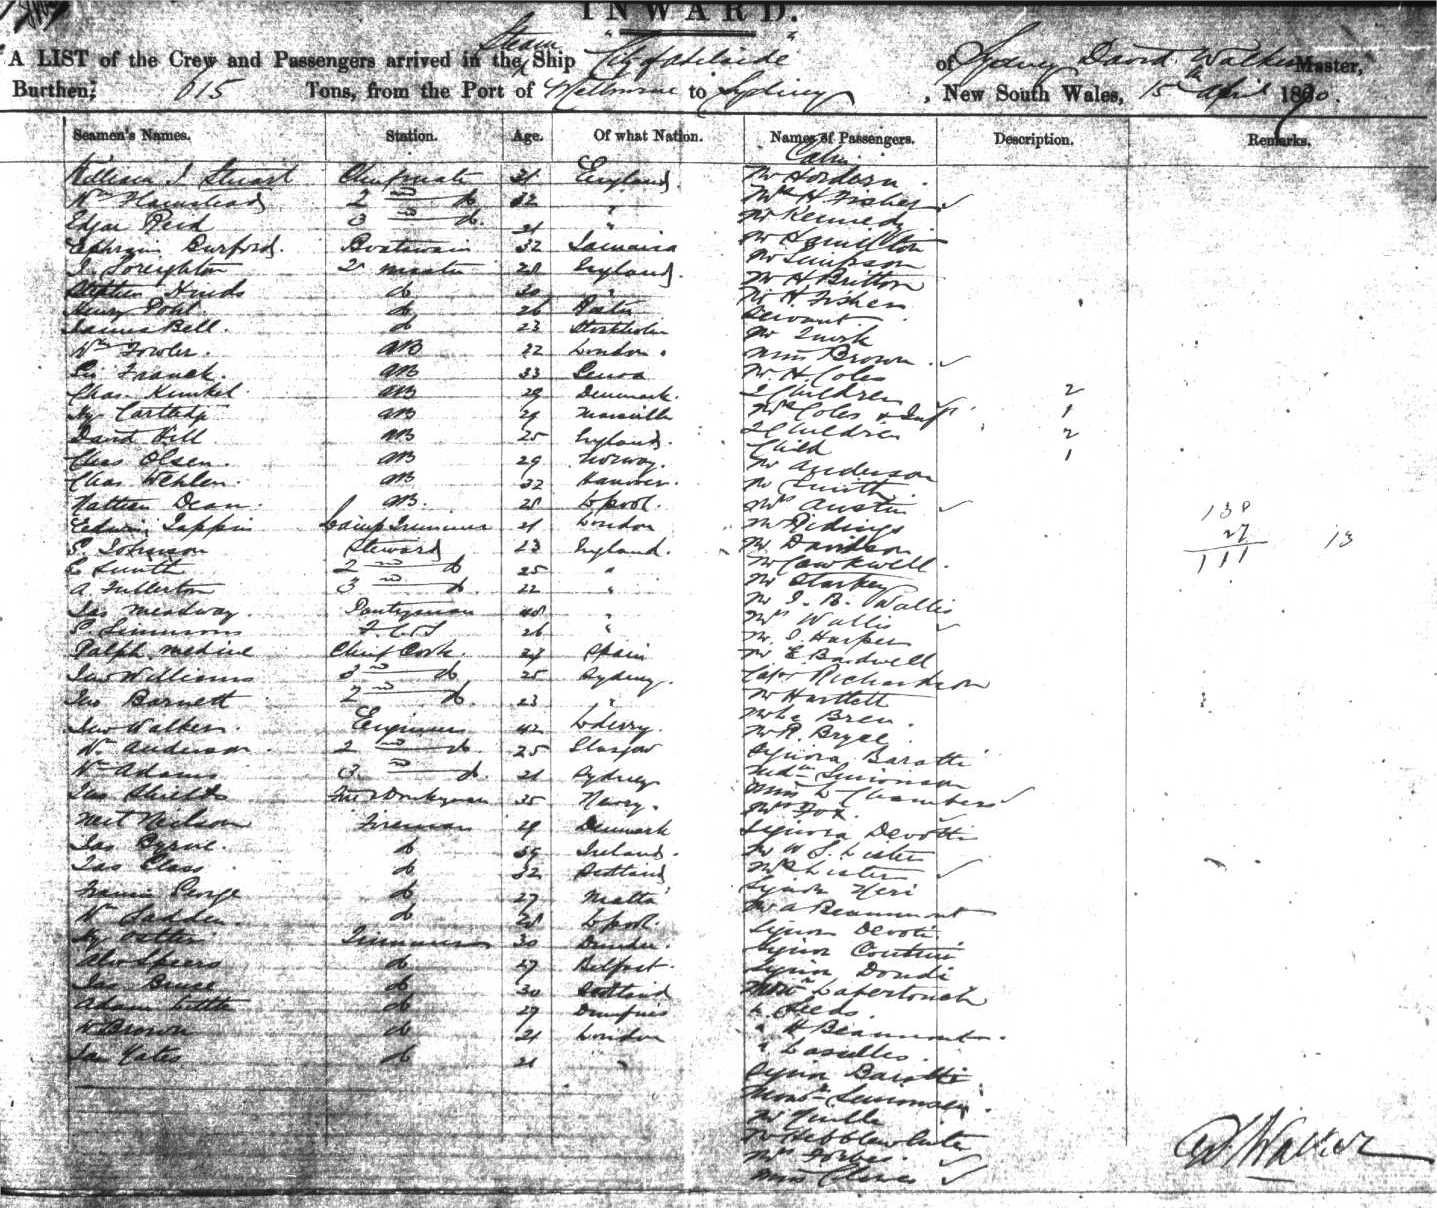 INWARD.
A LIST of the Crew and Passengers arrived in the Steam Ship "City of Adelaide" of Sydney David Walker Master,
Burthen; 615 Tons, from the Port of Melbourne to Sydney, New South Wales, 15th April 1870.
Seamen's Names. Station. Age. Of what Nation. Names of Passengers. Description. Remarks.
Cabin
William J. Stuart Chief mate England Mr Hordern
Wm 2nd do 32 " Mrs H Fisher
Edgar Reid 3rd do 21 " Mr Kennedy
Ephraim Burford. Boatswain 32 Jamaica Mr Hamilton
J. Loreighton 2 28 England. Mr Simpson
Stephen Hinds do 30 " Mr H Britton
Henry do 26 Mr H Fisher
James Bell. do 23 Stockholm Servant
Wm Fowler. AB 22 London. Mr Quirk
Franck. AB 33 Genoa Miss Brown
Chas. Kunkel AB 29 Denmark. Mr H Coles
Hy AB 29 Marseille 2 Children 2
David Hill AB 25 England. Mrs Coles & Inft. 1
Chas Olsen. AB 29 Norway. 2 Children 2
Chas Wehlen. AB 32 Hanover. Child 1
Mr Anderson
Nathan Dean. AB. 28 Lpool. Mr Smith
Edwin Tappin Lamp Trimmer 21 London Mrs Austin
S. Johnson Steward 23 England. Mr Ridings
138
27
111 13
E Smith 2nd do 25 " Mr Davidson
A. Fullerton 3rd do 22 " Mr Cawkwell
Jas Meadway. Pantryman 48 " Mr Starkey
S. Simmons 26 " Mr J. B. Wallis
Ralph Medine Chief Cook. 24 Spain Mrs Wallis
Jas Williams 3rd do 25 Sydney. Mr J. Harper
Jas Barnett 2nd do. 23 " Mr E. Bardwell
Jno Walker. Engineer 42 Lderry. Capt Richardson
Wm Anderson. 2nd do. 25 Glasgow Mr Hartlett
Wm Adams 3rd do. 21 Sydney Mr Le Bren.
Jas Shields 35 Newry. Mr R. Bryce.
Neil Neilson Fireman 29 Denmark Signora Baratti
Jas Byrne. do 39 Ireland. Simonsen
Jas Glass do 32 Scotland Miss L Chambers
Francis George do 27 Malta Mrs Fox.
Wm Ladden do 28 Lpool. Signora Devotti
Hy Trimmer 30 Dundee. Mr W. J. Lister
Alex Spiers do 27 Belfast. Mrs Lister
Jas Bruce do 30 Scotland Signor Neri
Adam Little do 27 Dumfries Mr A Beaumont
W Brown do 21 London Signor Devoti
Jas Yates do 21 " Signor Contini
Signor Dondi
" H Beaumont.
" Lascelles.
Signor Baratti
Monsr Simonsen.
Mr Neville
Mr Hebblewhite
Mrs Forbes.
Miss
D Walker